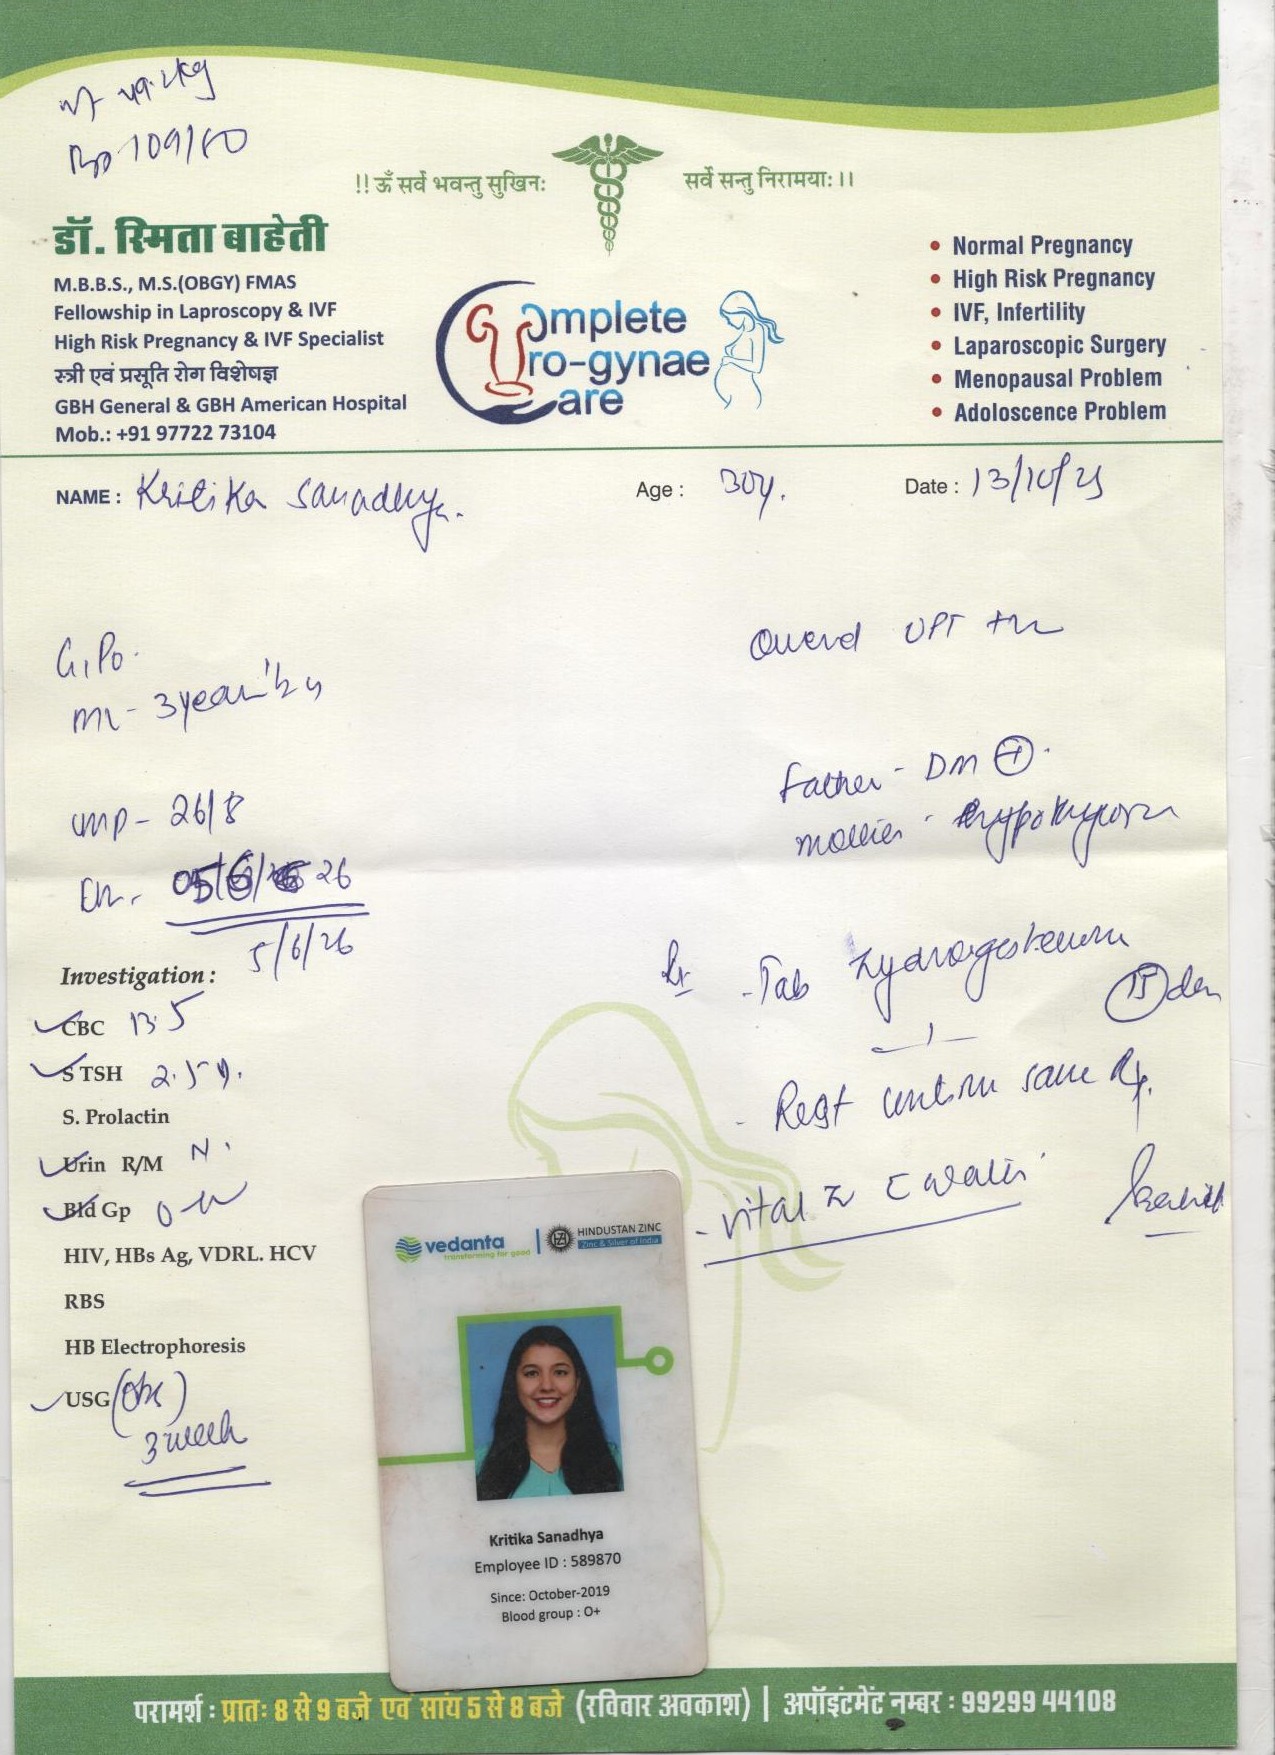 Bp 109/80
!! ॐ सर्वे भवन्तु सुखिन: सर्वे सन्तु निरामया: ।।
डॉ. स्मिता बाहेती
M.B.B.S., M.S.(OBGY) FMAS
Fellowship in Laproscopy & IVF
High Risk Pregnancy & IVF Specialist
स्त्री एवं प्रसूति रोग विशेषज्ञ
GBH General & GBH American Hospital
Mob.: +91 97722 73104
Complete
Uro-gynae
Care
• Normal Pregnancy
• High Risk Pregnancy
• IVF, Infertility
• Laparoscopic Surgery
• Menopausal Problem
• Adoloscence Problem
NAME : Kritika Sanadhya. Age : 30y. Date : 13/10/25
G1P0.
3year
Overd UPT +ve
LMP - 26/8
Father - DM +.
Mother -
05/6/26
5/6/26
Tab
15 den
Rest same Rx.
Vital Z
Investigation :
CBC 13.5
S TSH 2.59.
S. Prolactin
Urin R/M N.
Bld Gp
HIV, HBs Ag, VDRL. HCV
RBS
HB Electrophoresis
USG (Obs)
3 week
vedanta
transforming for good
HINDUSTAN ZINC
Zinc & Silver of India
Kritika Sanadhya
Employee ID : 589870
Since: October-2019
Blood group : O+
परामर्श : प्रातः 8 से 9 बजे एवं सांय 5 से 8 बजे (रविवार अवकाश) | अपॉइंटमेंट नम्बर : 99299 44108